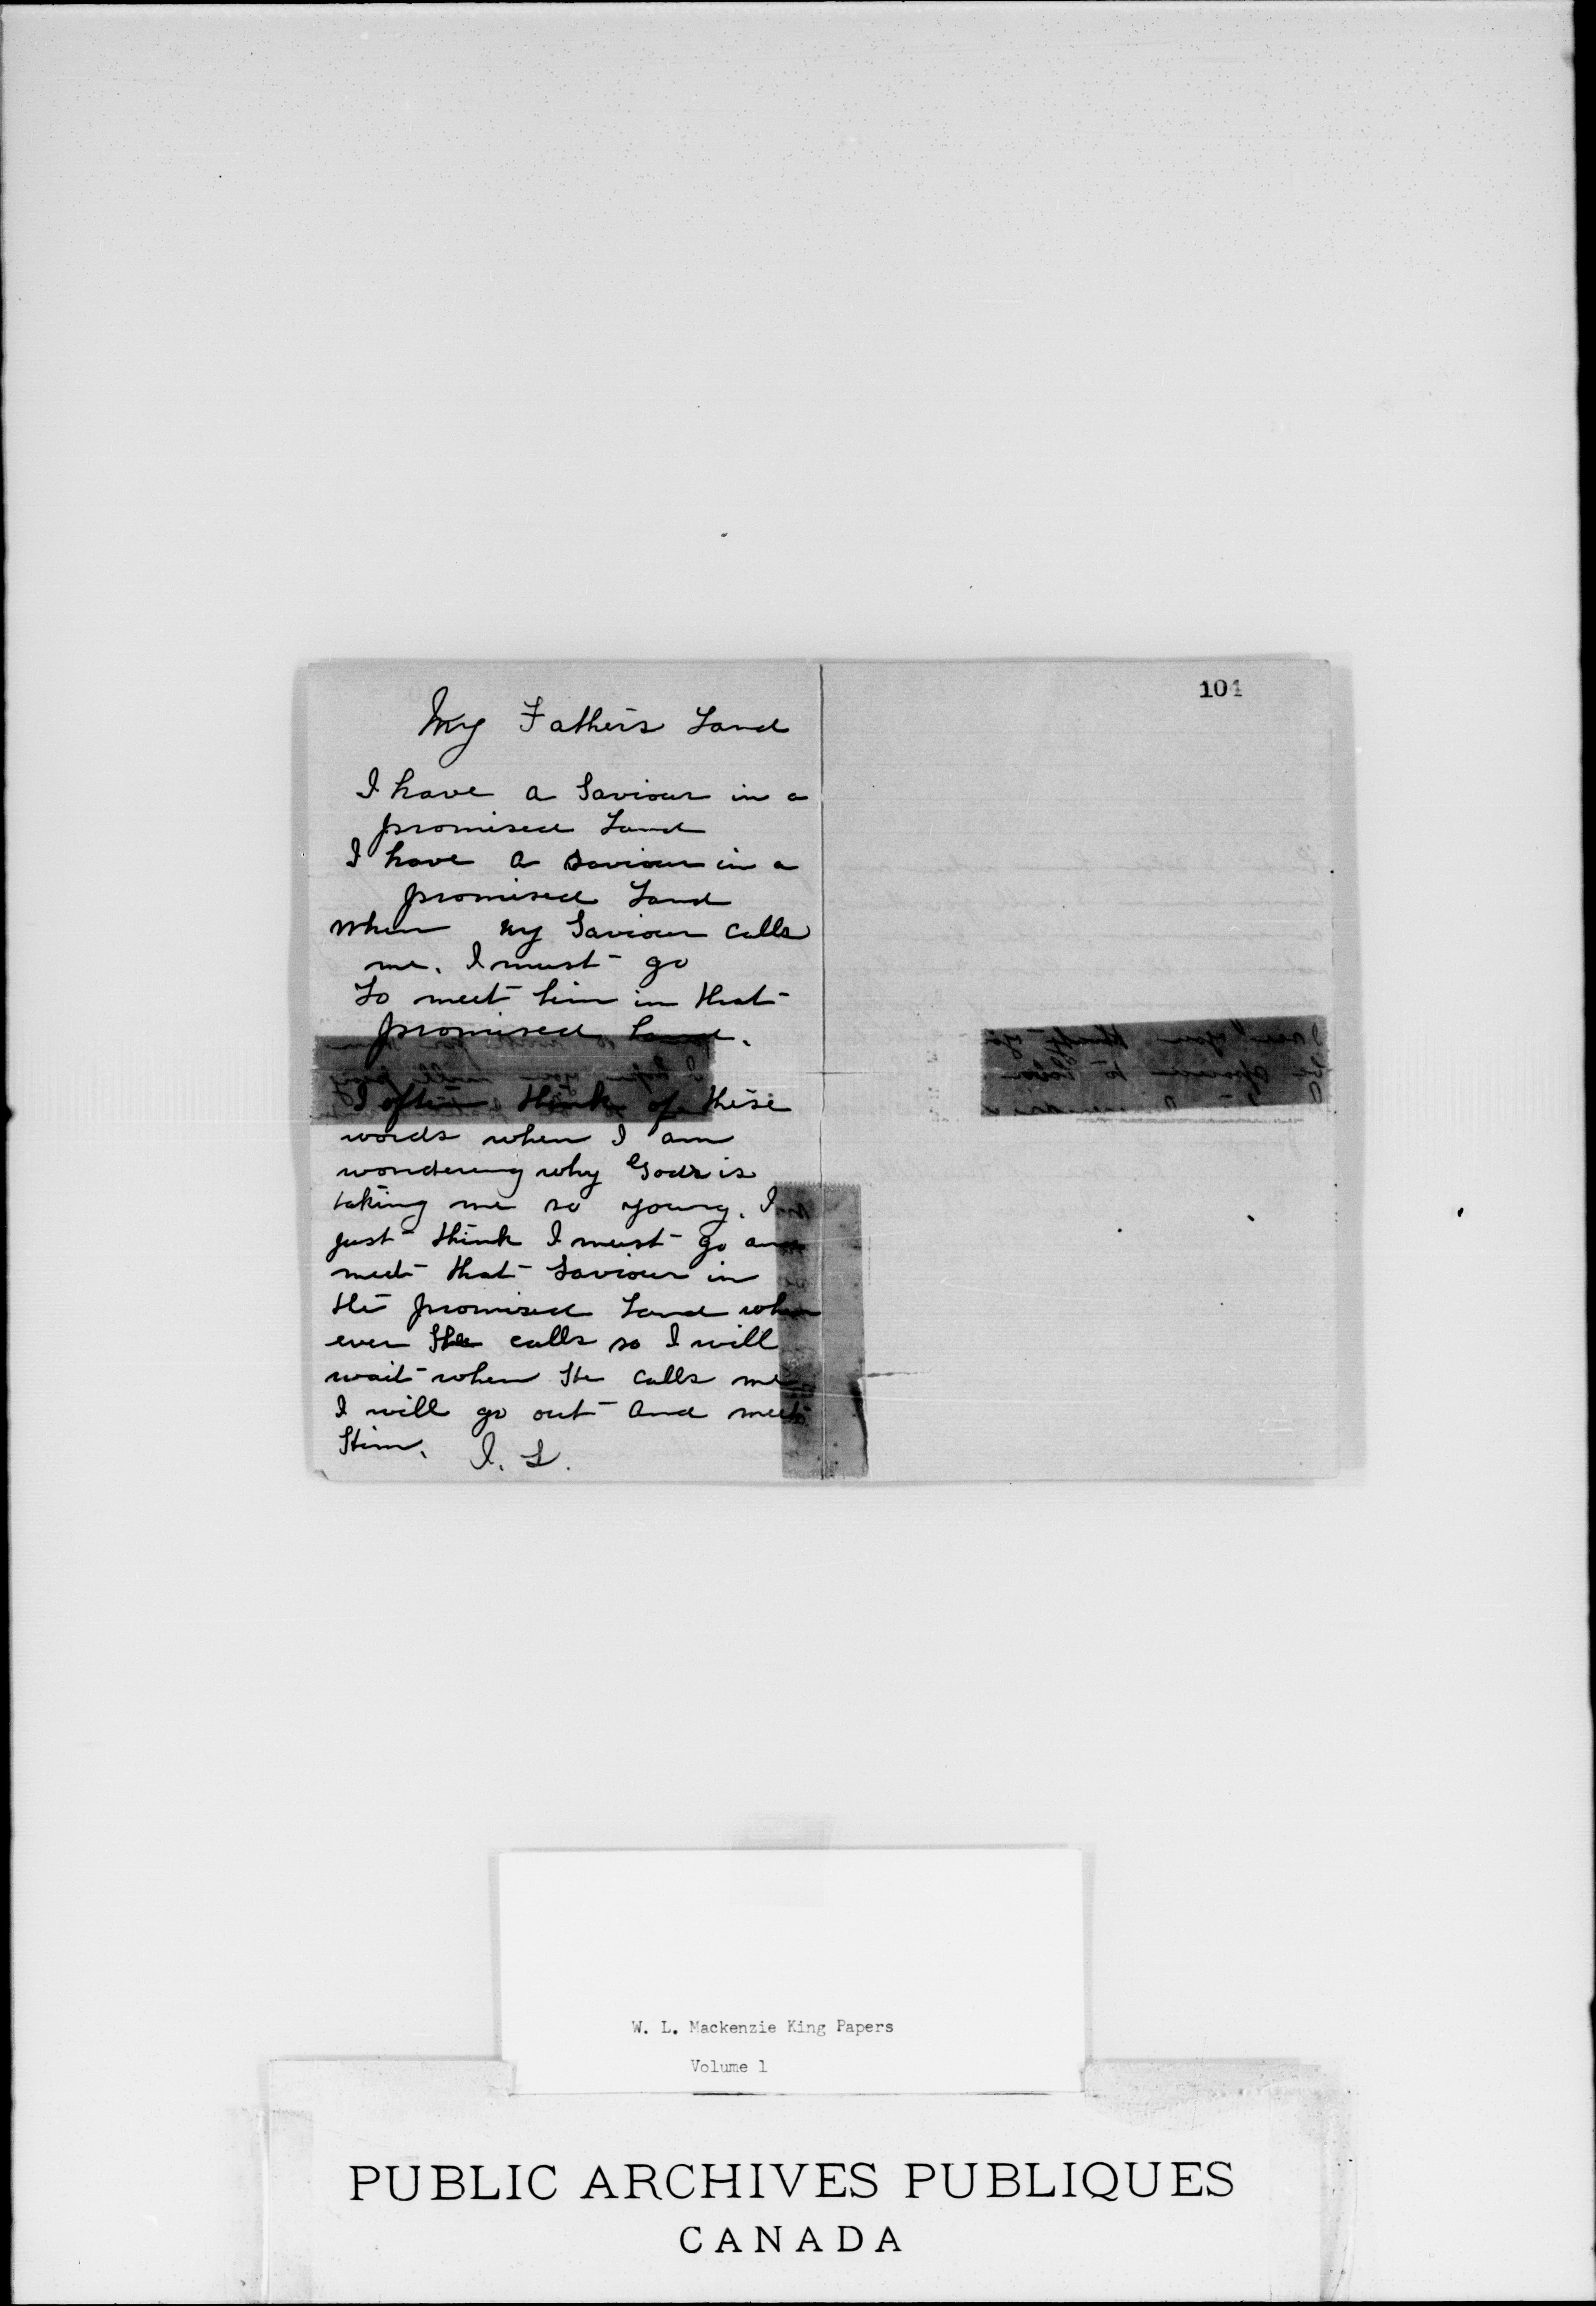 My Father's Land
I have a Saviour in a
promised Land
I have a Saviour in a
promised Land
When my Saviour calls
me. I must go
To meet him in that
promised Land.
I often think of these
words when I am
wondering why God is
taking me so young. I
just think I must go and
meet that Saviour in
the promised Land when
ever He calls so I will
wait when He calls me
I will go out and meet
Him. I. L.
104
W. L. Mackenzie King Papers
Volume 1
PUBLIC ARCHIVES PUBLIQUES
CANADA